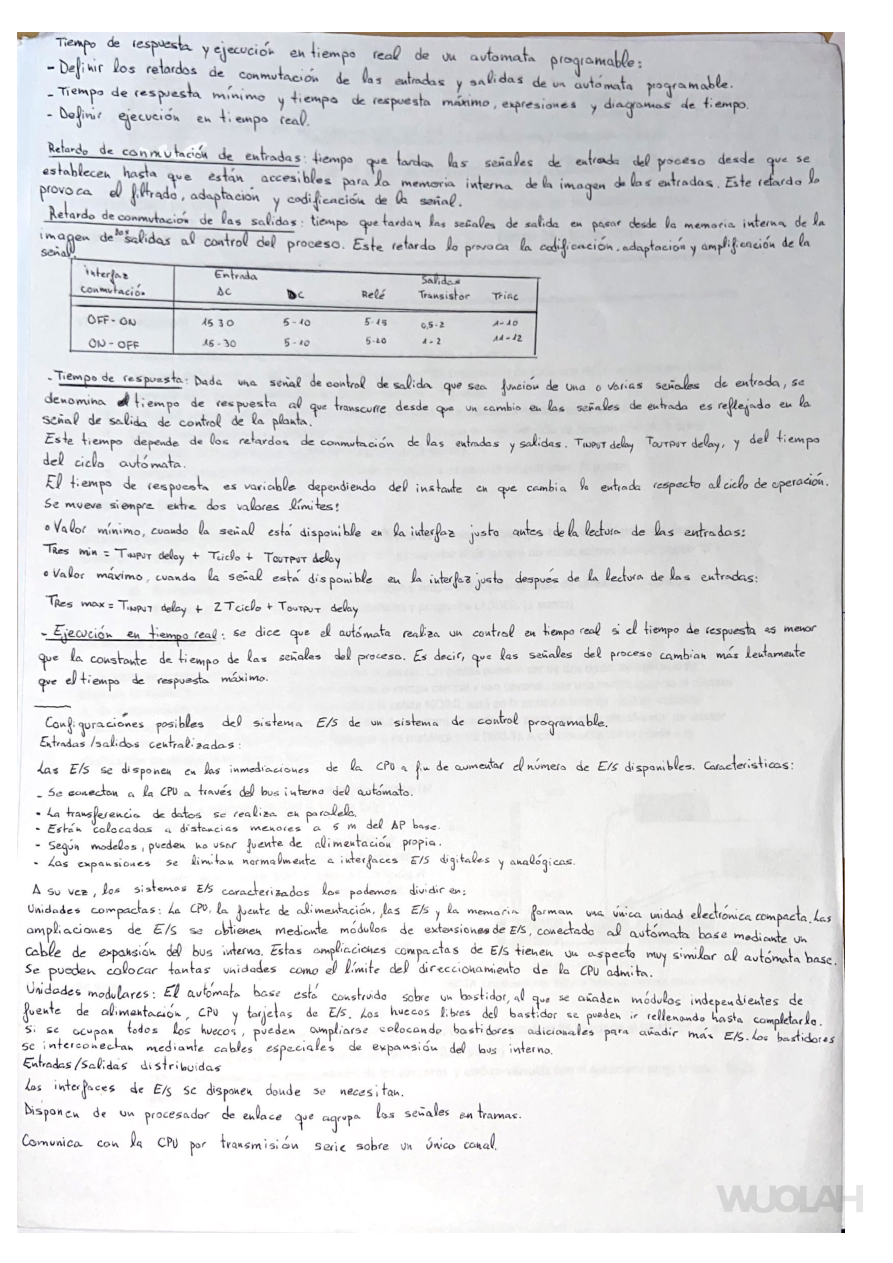 Tiempo de respuesta y ejecución en tiempo real de un automata programable:
- Definir los retardos de conmutación de las entradas y salidas de un autómata programable.
- Tiempo de respuesta mínimo y tiempo de respuesta máximo, expresiones y diagramas de tiempo.
- Definir ejecución en tiempo real.
Retardo de conmutación de entradas: tiempo que tardan las señales de entrada del proceso desde que se
establecen hasta que están accesibles para la memoria interna de la imagen de las entradas. Este retardo lo
provoca el filtrado, adaptación y codificación de la señal.
Retardo de conmutación de las salidas: tiempo que tardan las señales de salida en pasar desde la memoria interna de la
imagen de las salidas al control del proceso. Este retardo lo provoca la codificación, adaptación y amplificación de la
señal.
interfaz Entrada Salidas
conmutación AC DC Relé Transistor Triac
OFF - ON 15 30 5 - 10 5-15 0,5-2 1-10
ON - OFF 15-30 5-10 5-20 1-2 11-12
- Tiempo de respuesta: Dada una señal de control de salida que sea función de una o varias señales de entrada, se
denomina el tiempo de respuesta al que transcurre desde que un cambio en las señales de entrada es reflejado en la
señal de salida de control de la planta.
Este tiempo depende de los retardos de conmutación de las entradas y salidas. TINPUT delay TOUTPUT delay, y del tiempo
del ciclo autómata.
El tiempo de respuesta es variable dependiendo del instante en que cambia la entrada respecto al ciclo de operación.
Se mueve siempre entre dos valores límites:
• Valor mínimo, cuando la señal está disponible en la interfaz justo antes de la lectura de las entradas:
TRes min = TINPUT delay + Tciclo + TOUTPUT delay
• Valor máximo, cuando la señal está disponible en la interfaz justo después de la lectura de las entradas:
TRes max = TINPUT delay + 2 Tciclo + TOUTPUT delay
- Ejecución en tiempo real: se dice que el autómata realiza un control en tiempo real si el tiempo de respuesta es menor
que la constante de tiempo de las señales del proceso. Es decir, que las señales del proceso cambian más lentamente
que el tiempo de respuesta máximo.
Configuraciones posibles del sistema E/S de un sistema de control programable.
Entradas/salidas centralizadas:
Las E/S se disponen en las inmediaciones de la CPU a fin de aumentar el número de E/S disponibles. Caracteristicas:
- Se conectan a la CPU a través del bus interno del autómato.
- La transferencia de datos se realiza en paralelo.
- Están colocadas a distancias menores a 5 m del AP base.
- Según modelos, pueden no usar fuente de alimentación propia.
- Las expansiones se limitan normalmente a interfaces E/S digitales y analógicas.
A su vez, los sistemas E/S caracterizados los podemos dividir en:
Unidades compactas: La CPU, la fuente de alimentación, las E/S y la memoria forman una única unidad electrónica compacta. Las
ampliaciones de E/S se obtienen mediante módulos de extensiones de E/S, conectado al autómata base mediante un
cable de expansión del bus interno. Estas ampliaciones compactas de E/S tienen un aspecto muy similar al autómata base.
Se pueden colocar tantas unidades como el límite del direccionamiento de la CPU admita.
Unidades modulares: El autómata base está construido sobre un bastidor, al que se añaden módulos independientes de
fuente de alimentación, CPU y tarjetas de E/S. Los huecos libres del bastidor se pueden ir rellenando hasta completarlo.
Si se ocupan todos los huecos, pueden ampliarse colocando bastidores adicionales para añadir más E/S. Los bastidores
se interconectan mediante cables especiales de expansión del bus interno.
Entradas/Salidas distribuidas
Los interfaces de E/S se disponen donde se necesitan.
Disponen de un procesador de enlace que agrupa las señales en tramas.
Comunica con la CPU por transmisión serie sobre un único canal.
WUOLAH